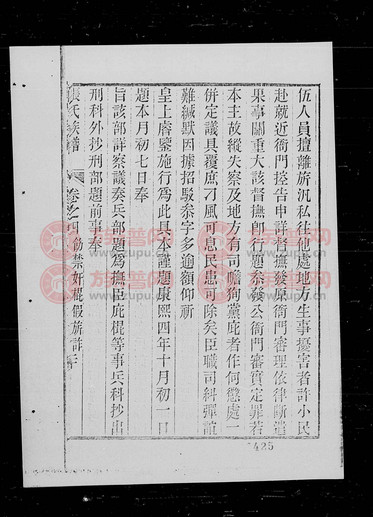 伍人員擅離旂汛私往他處地方生事擾害者許小民
赴就近衙門控告申詳督撫發原衙門審理依律斷遣
果事關重大該督撫卽行題參發公衙門審實定罪若
本主故縱失察及地方有司瞻狥黨庇者作何懲處一
併定議具覆庶刁風可息民患可除矣臣職司糾彈誼
難緘默因據招駁叅字多逾額仰祈
皇上睿鑒施行爲此具本謹題康熙四年十月初一日
題本月初七日奉
旨該部詳察議奏兵部題爲撫臣庇棍等事兵科抄出
刑科外抄刑部題前事奉
張氏族譜 卷之四 禁奸棍假旂詐
425
族譜網
zupu.cn